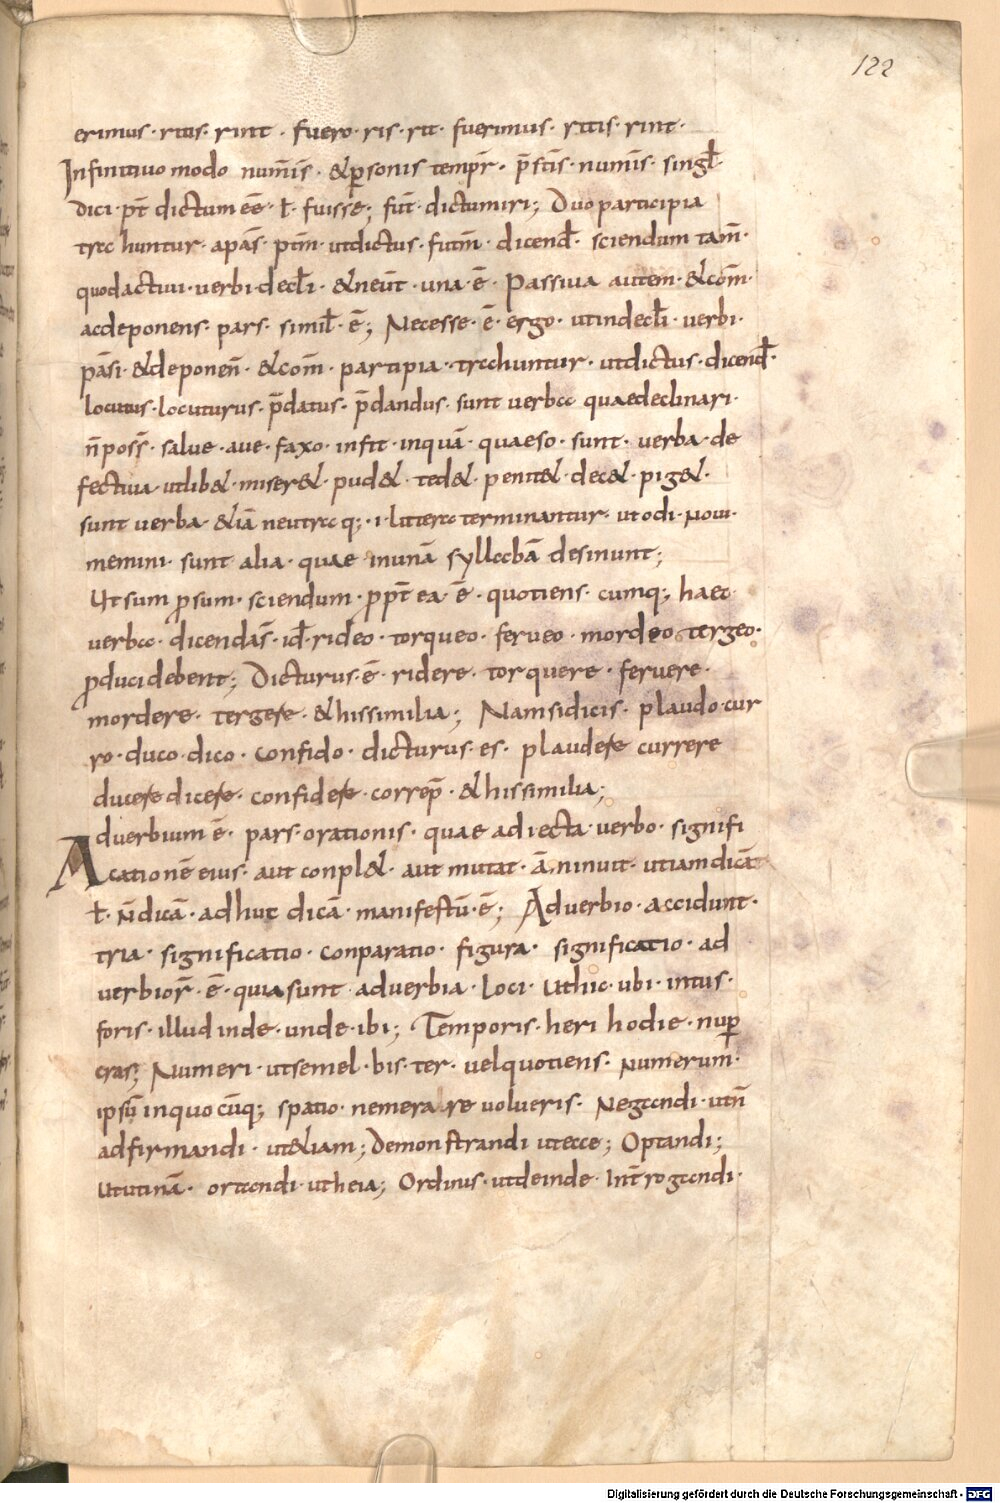 122
erimus · ritis · rint · fuero · ris · rit · fuerimus · ritis · rint ·
Infinitiuo modo num̄is · &ꝑsonis tempr̄ · p̄sētis · num̄is · singł ·
dici · pt̄ dictum eē · ł · fuisse; fut̄ · dictumiri; Duo participia
trahuntur · apas̄ · ptm̄ · utdictus · futm̄ · dicend̄ · sciendum tam̄ ·
quodactiui · uerbi · decłi · &neut̄ · una · ē · Passiua autem · &com̄ ·
acdeponens · pars · simił · ē; Necesse · ē · ergo · utindecłi · uerbi ·
pas̄i · &deponen̄ · &com̄ · partipia · trahuntur · utdictus · dicend̄ ·
locutus · locuturus · p̄datus · p̄dandus · sunt uerba quaedeclinari ·
n̄poss̄ · salue · aue · faxo · infit · inquā · quaeso · sunt · uerba · de
fectiua · utlib& · miser& · pud& · ted& · penit& · dec& · pig& ·
sunt uerba · &iā neutra q; · i · littera terminantur · ut odi · noui ·
memini · sunt alia · quae inunā syllabā desinunt;
Ut sum ꝓsum · sciendum · ꝓpt̄ ea · ē · quotiens · cumq; haec
uerba · dicendas̄ · id̄ · rideo · torqueo · ferueo · mordeo · tergeo ·
ꝓduci debent; Dicturus · ē · ridere · torquere · feruere ·
mordere · tergere · &hissimilia; Namsidicis · plaudo · cur
ro · duco · dico · confido · dicturus · es · plaudere currere
ducere dicere · confidere · correp̄ · &hissimilia;
Aduerbium ē · pars · orationis · quae adiecta · uerbo · signifi
cationē eius · aut conpl& · aut mutat · ā · ninuit · utiamdicā
ł · n̄dicā · adhuc dicā · manifestū · ē; Aduerbio · accidunt ·
tria · significatio · conparatio · figura · significatio · ad
uerbior̄ · ē · quia sunt · aduerbia · loci · uthic · ubi · intus ·
foris · illud inde · unde · ibi; Temporis · heri hodie · nuꝑ
cras; Numeri · utsemel · bis · ter · uelquotiens · numerum ·
ipsū inquo cūq; spatio · nemerare uolueris · Negandi · utn̄
adfirmandi · ut&iam; Demonstrandi utecce; Optandi;
ututinā · ortandi · utheia; Ordinis · utdeinde · Int̄rogandi ·
Digitalisierung gefördert durch die Deutsche Forschungsgemeinschaft - DFG